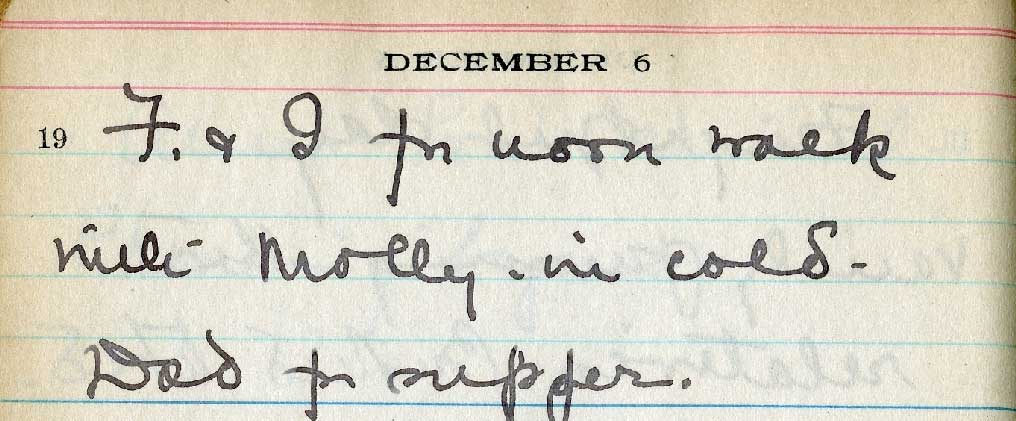 DECEMBER 6
19 F. & I for noon walk
with Molly - in cold -
Dad for supper.